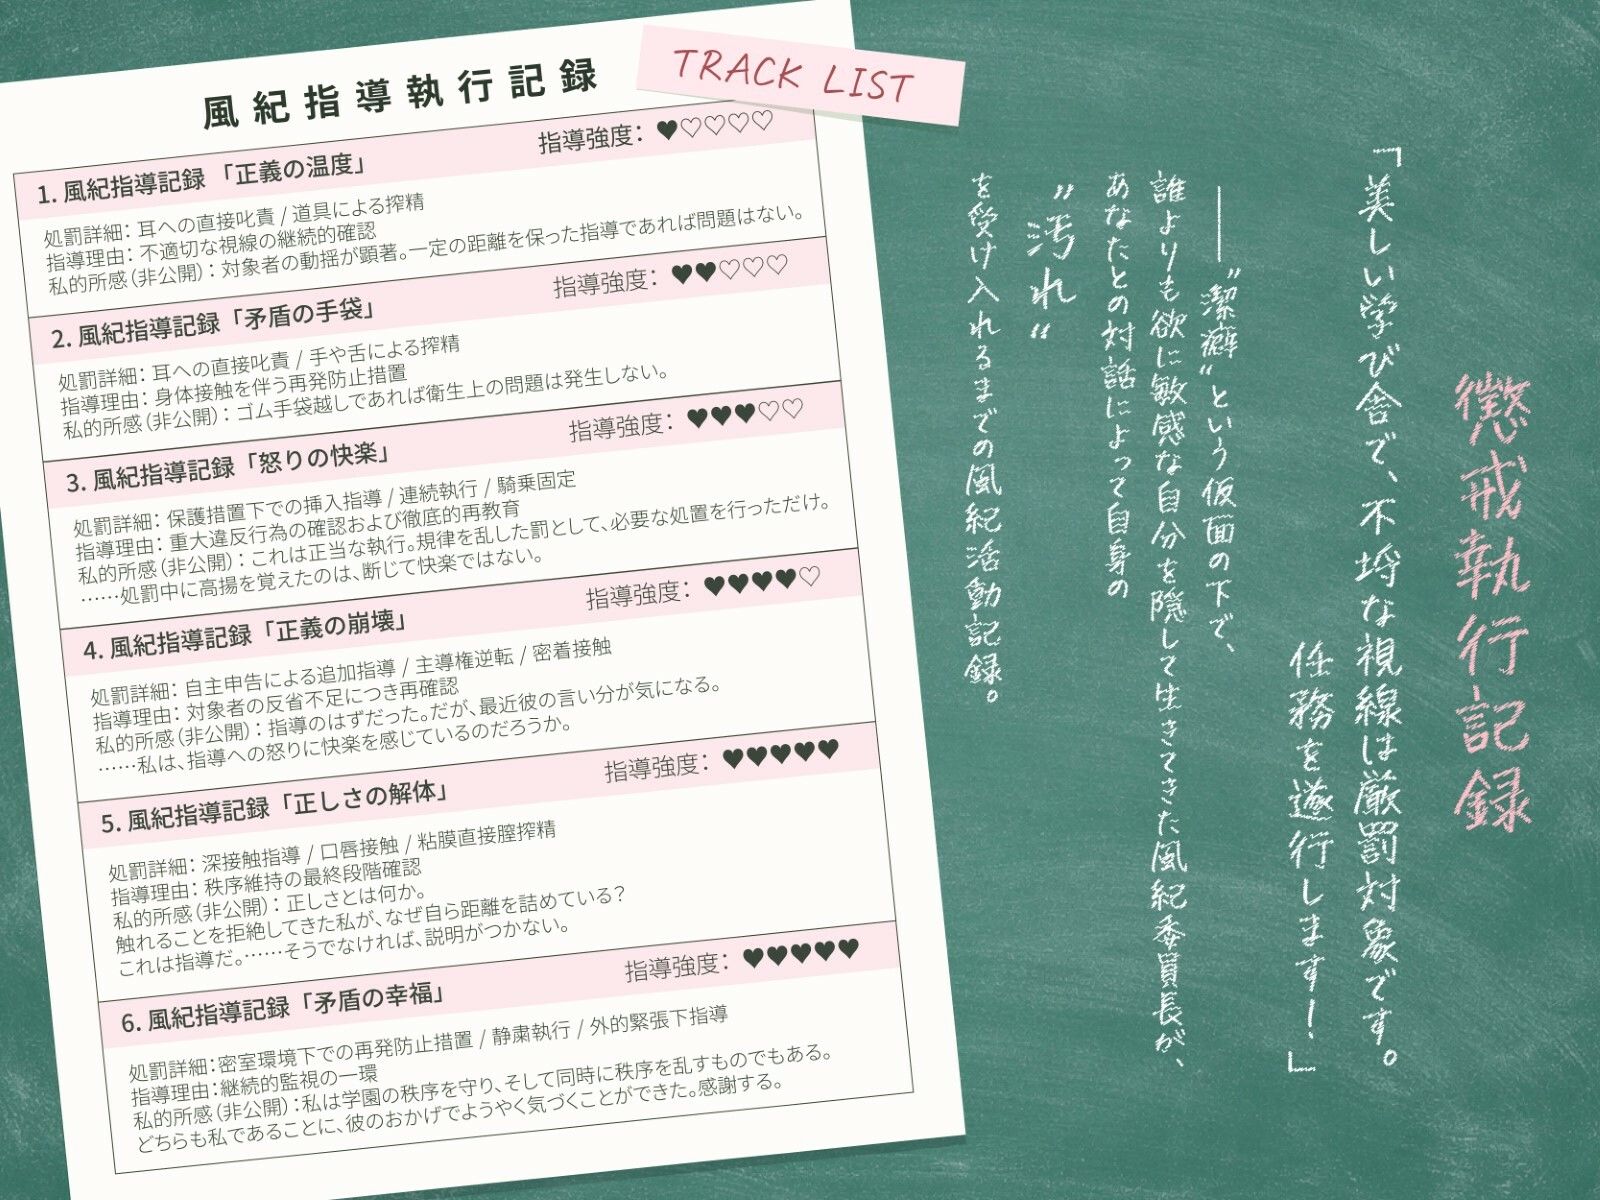 風紀指導執行記録
TRACK LIST
1. 風紀指導記録 「正義の温度」
指導強度： ♥♡♡♡♡
処罰詳細： 耳への直接叱責 / 道具による搾精
指導理由： 不適切な視線の継続的確認
私的所感（非公開）： 対象者の動揺が顕著。一定の距離を保った指導であれば問題はない。
2. 風紀指導記録「矛盾の手袋」
指導強度： ♥♥♡♡♡
処罰詳細： 耳への直接叱責 / 手や舌による搾精
指導理由： 身体接触を伴う再発防止措置
私的所感（非公開）： ゴム手袋越しであれば衛生上の問題は発生しない。
3. 風紀指導記録「怒りの快楽」
指導強度： ♥♥♥♡♡
処罰詳細： 保護措置下での挿入指導 / 連続執行 / 騎乗固定
指導理由： 重大違反行為の確認および徹底的再教育
私的所感（非公開）： これは正当な執行。規律を乱した罰として、必要な処置を行っただけ。
……処罰中に高揚を覚えたのは、断じて快楽ではない。
4. 風紀指導記録「正義の崩壊」
指導強度： ♥♥♥♥♡
処罰詳細： 自主申告による追加指導 / 主導権逆転 / 密着接触
指導理由： 対象者の反省不足につき再確認
私的所感（非公開）： 指導のはずだった。だが、最近彼の言い分が気になる。
……私は、指導への怒りに快楽を感じているのだろうか。
5. 風紀指導記録「正しさの解体」
指導強度： ♥♥♥♥♥
処罰詳細： 深接触指導 / 口唇接触 / 粘膜直接膣搾精
指導理由： 秩序維持の最終段階確認
私的所感（非公開）： 正しさとは何か。
触れることを拒絶してきた私が、なぜ自ら距離を詰めている？
これは指導だ。……そうでなければ、説明がつかない。
6. 風紀指導記録「矛盾の幸福」
指導強度： ♥♥♥♥♥
処罰詳細：密室環境下での再発防止措置 / 静粛執行 / 外的緊張下指導
指導理由：継続的監視の一環
私的所感（非公開）：私は学園の秩序を守り、そして同時に秩序を乱すものでもある。
どちらも私であることに、彼のおかげでようやく気づくことができた。感謝する。
懲戒執行記録
「美しい学び舎で、不埒な視線は厳罰対象です。
任務を遂行します―.」
――”潔癖”という仮面の下で、
誰よりも欲に敏感な自分を隠して生きてきた風紀委員長が、
あなたとの対話によって自身の
”汚れ”
を受け入れるまでの風紀活動記録。